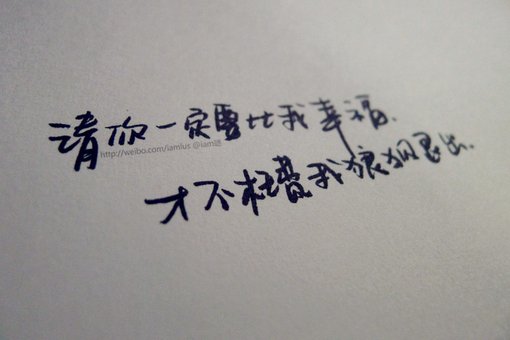 请你一定要比我幸福.
http://weibo.com/iamlus @iam
才不枉费我狼狈退出.